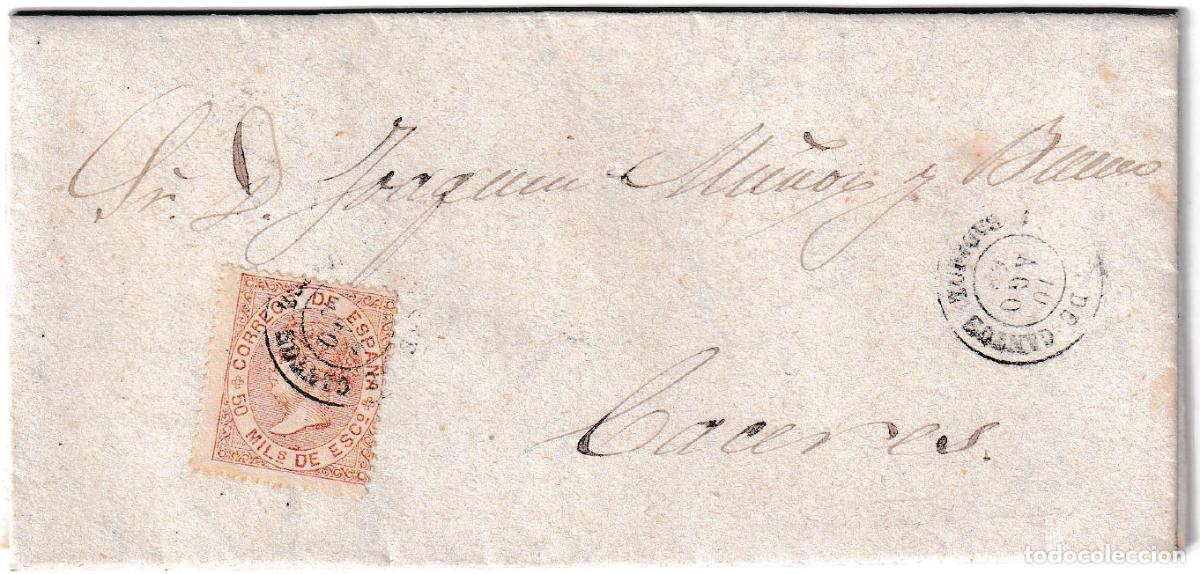 Sr. D. Joaquin Muñoz y Bueno
CORREOS DE ESPAÑA
50 MILS DE ESCO
10
AGO
Caceres.
todocoleccion